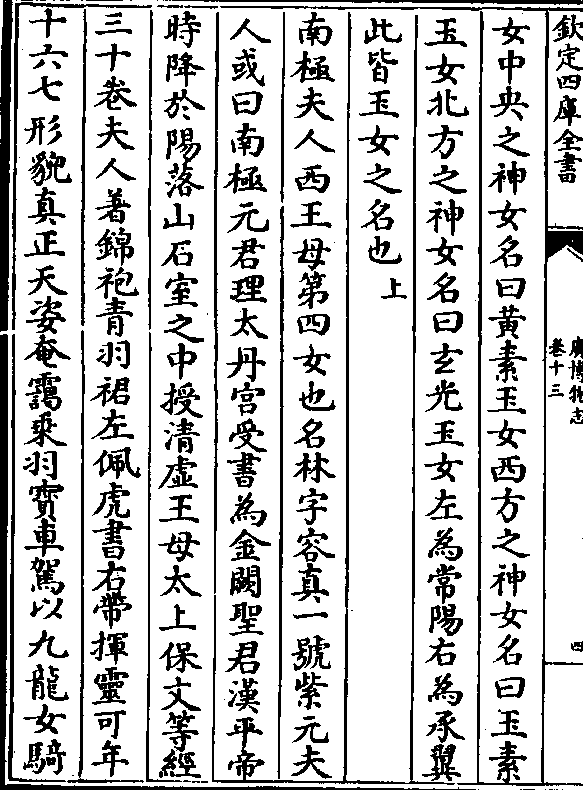 欽定四庫全書
廣博物志
卷十三
四
女中央之神女名曰黃素玉女西方之神女名曰玉素
玉女北方之神女名曰玄光玉女左為常陽右為承翼
此皆玉女之名也上
南極夫人西王母第四女也名林字容真一號紫元夫
人或曰南極元君理太丹宮受書為金闕聖君漢平帝
時降於陽落山石室之中授清虛王母太上保文等經
三十卷夫人著錦袍青羽裙左佩虎書右帶揮靈可年
十六七形貌真正天姿奄靄乘羽寶車駕以九龍女騎